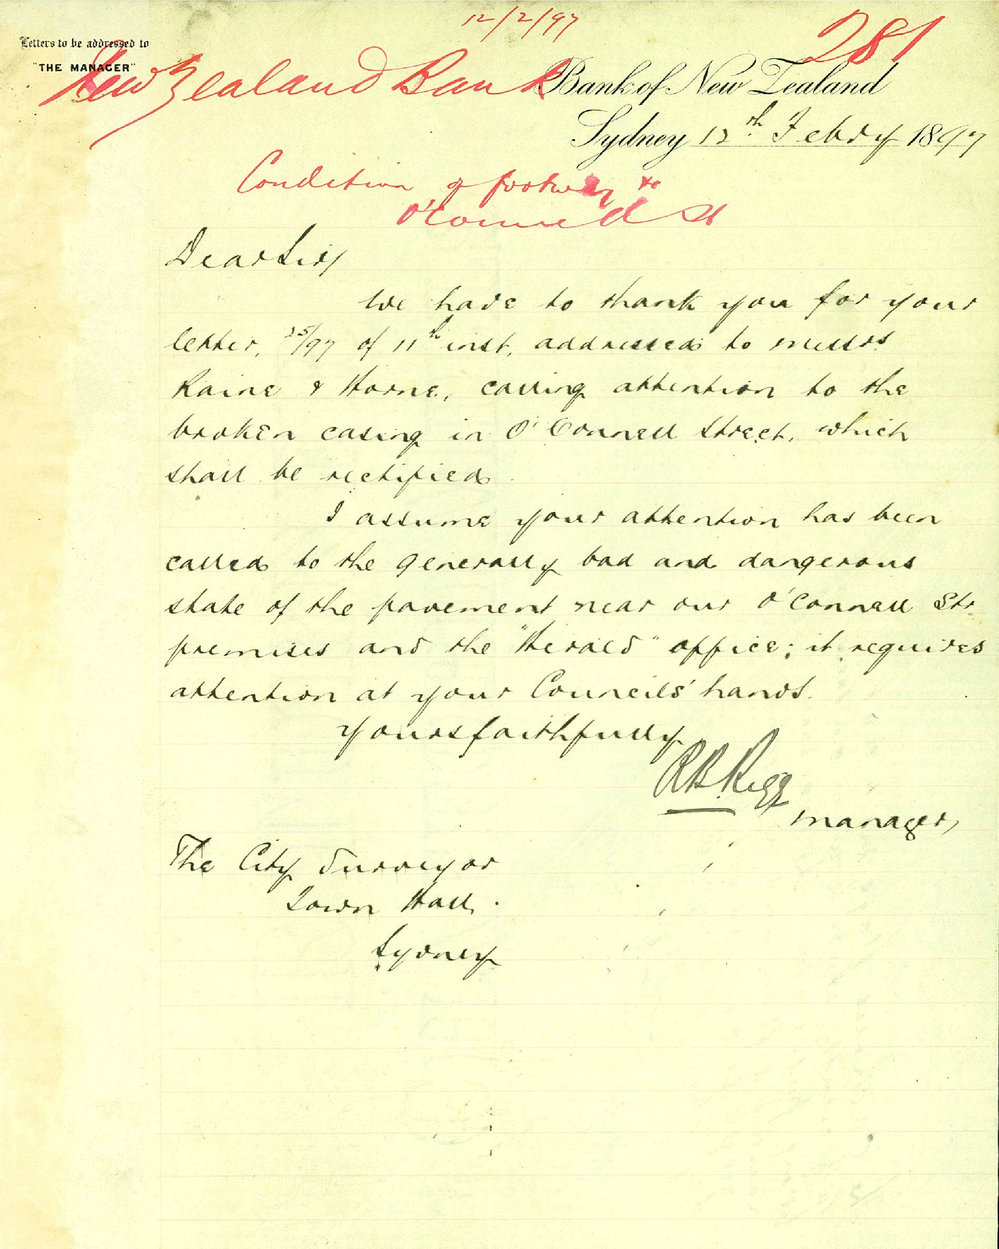 12/2/97
281
Letters to be addressed to
"THE MANAGER"
New Zealand Bank
Bank of New Zealand
Sydney 12th Febry 1897
Condition of footway to
O'Connell St
Dear Sir,
We have to thank you for your
letter, 25/97 of 11th inst, addressed to Messrs
Raine & Horne, calling attention to the
broken casing in O'Connell Street, which
shall be rectified.
I assume your attention has been
called to the generally bad and dangerous
state of the pavement near our O'Connell Str
premises and the "Herald" office; it requires
attention at your Councils' hands.
Yours faithfully
R B Rigg
Manager,
The City Surveyor
Town Hall.
Sydney